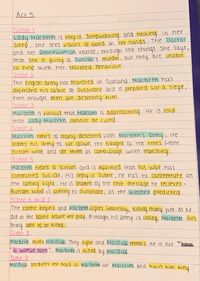 Act 5
Scene 1
Lady Macbeth is seen sleepwalking and talking in her
sleep, she sees visions of blood on her hands. The Doctor
and her Gentlewoman realise, through the things she says,
that she is guilty of Duncan's murder, but they are unable
to help with her troubled behaviour.
Scene 2
The English army has marched on Scotland. Macbeth has
defended his castle at Dunsinane and is prepared for a siege,
even though men are deserting him.
Scene 3
Macbeth is that Malcolm is approaching. He is told
that Lady Macbeth is
Scene 4
Malcolm hears of many deserters from Macbeth's army. He
orders his army to cut down the boughs of the trees from
Birnam Wood and use them as camouflage when marching.
Scene 5
Macbeth hears a scream and is informed that his wife has
committed suicide. His reply is short, he has to concentrate on
the coming fight. He is shaken by the next message he receives -
Birnam Wood is coming to Dunsinane, as the witches predicted
Scene 6 and 7
The battle begins and Macbeth fights fiercely, killing many just as he
did in the battle before the play. Although his army is losing, Macbeth
being able to be killed.
Scene 8
Macbeth meets Macduff. They fight and Macduff reveals he is not "
is woman born". Macbeth is killed by Macduff.
Scene 9
Macduff produces the head of Macbeth for Malcolm and hails him king.